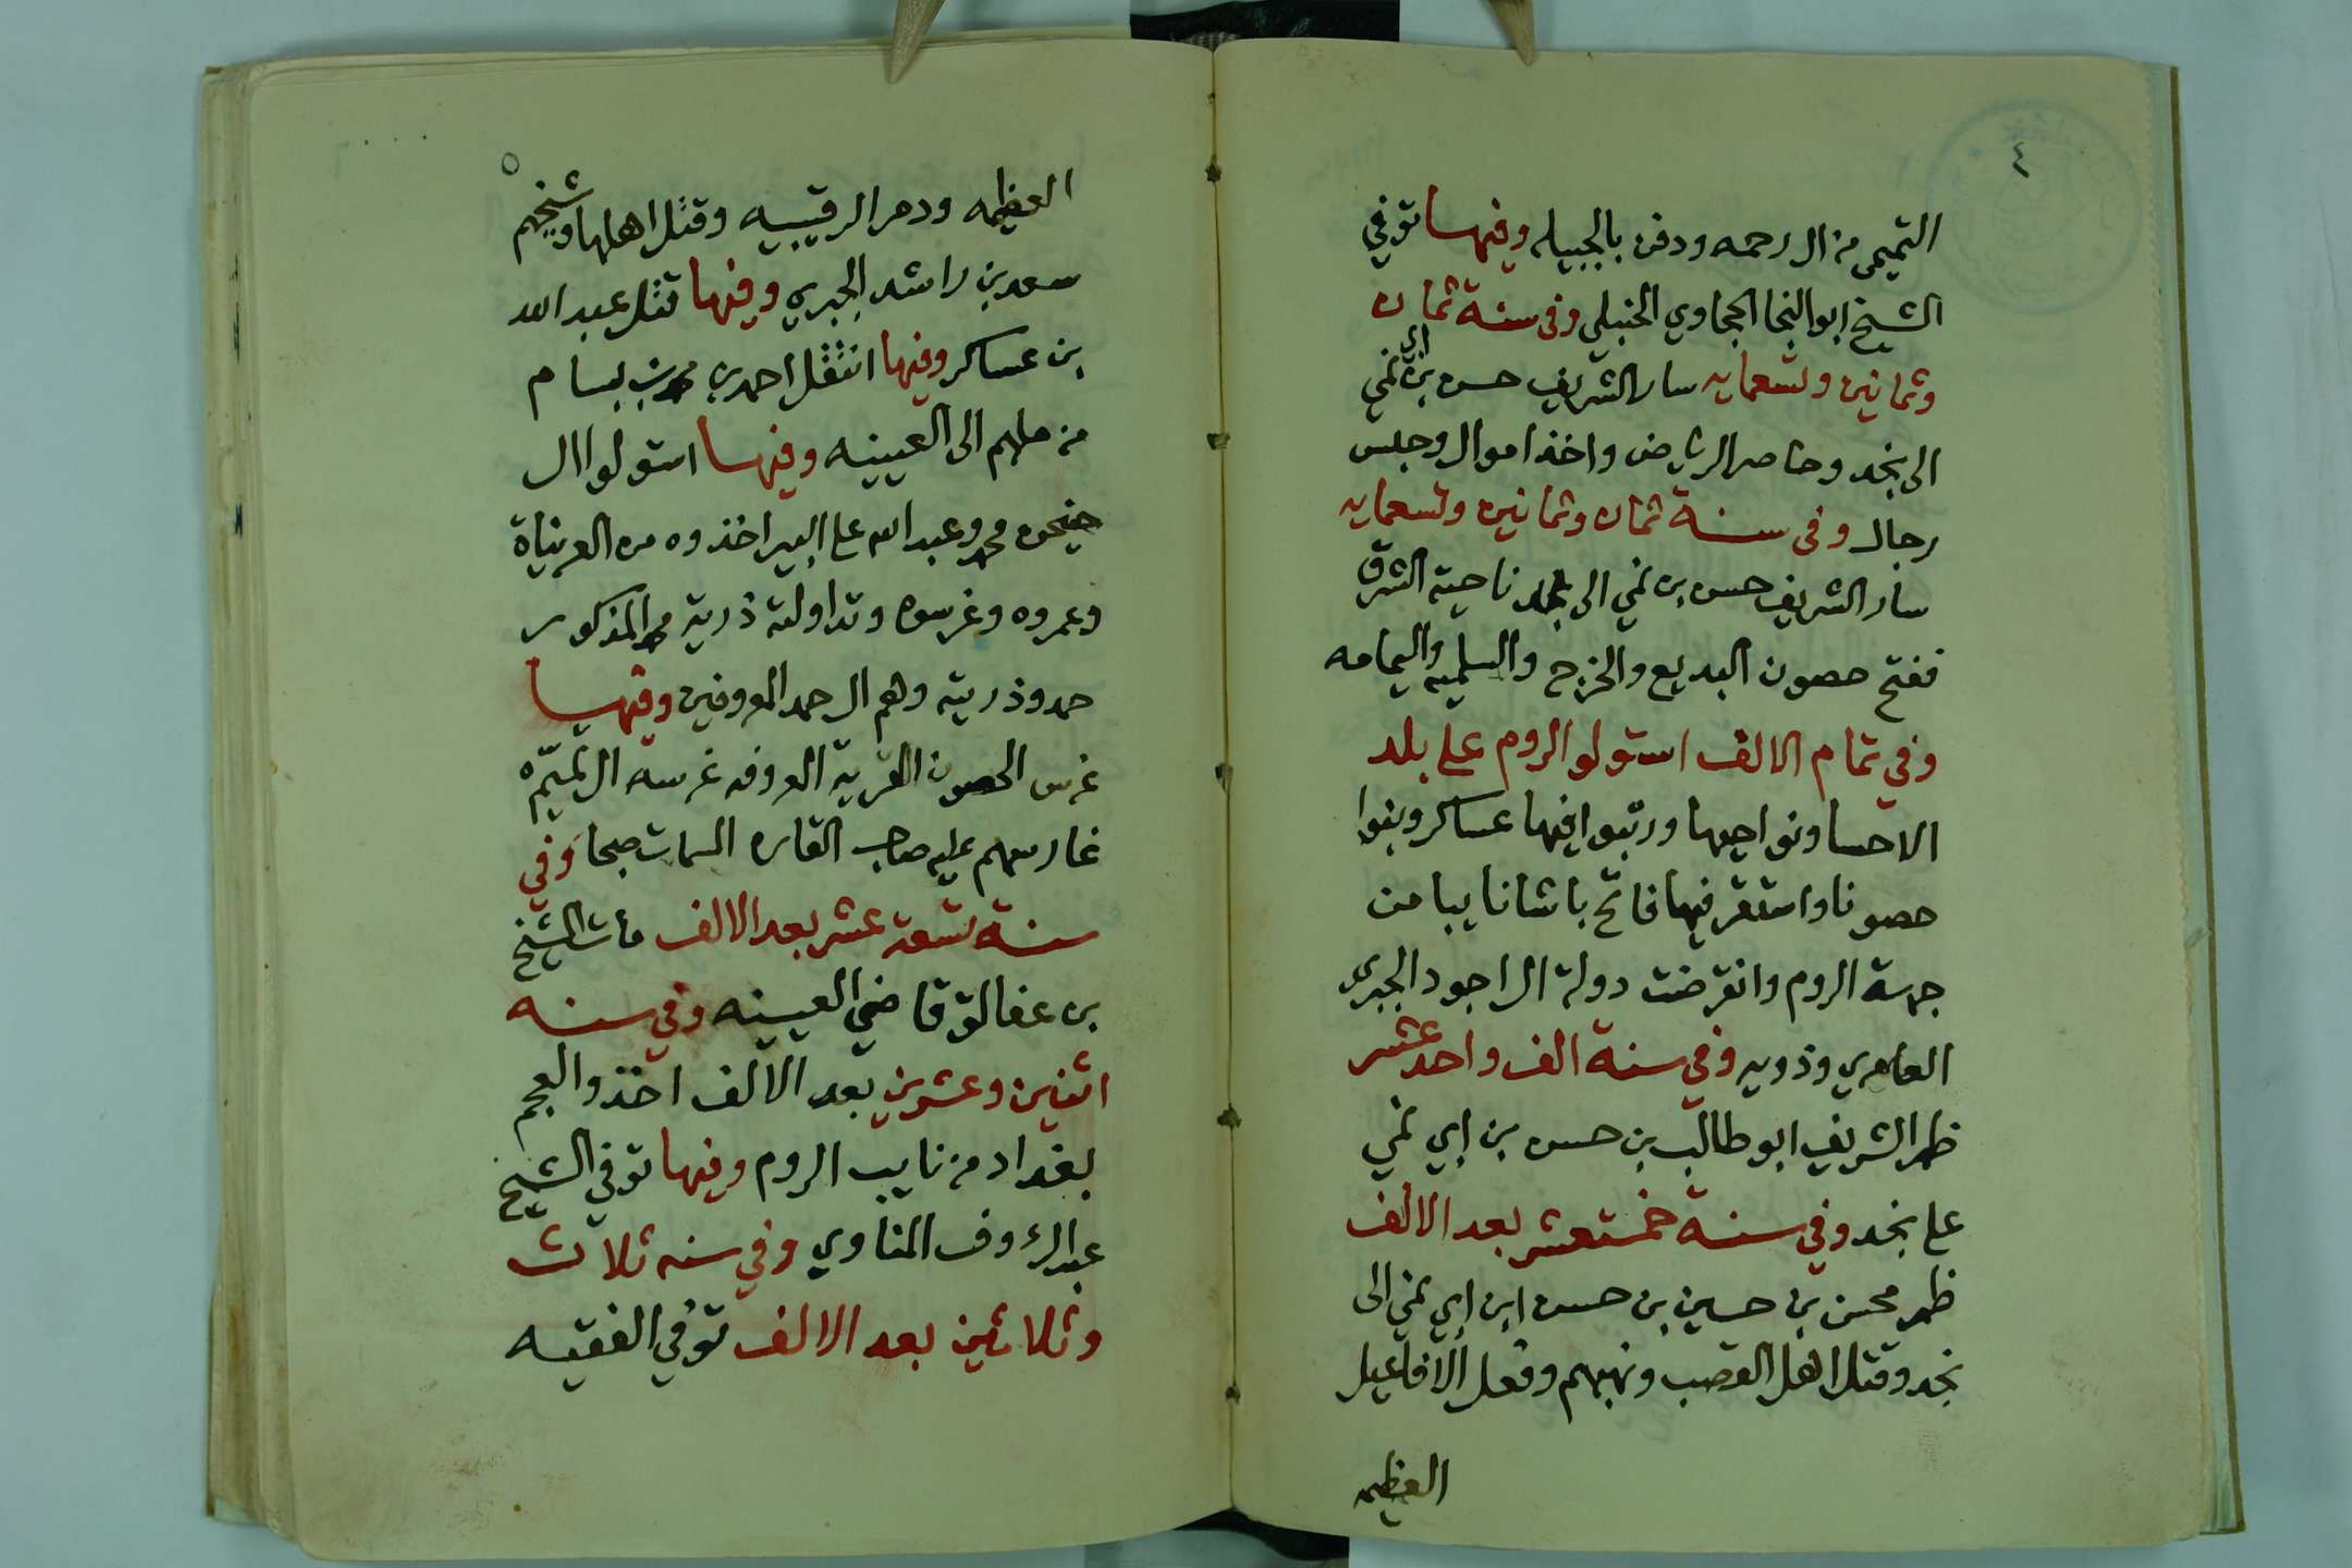 ٤
التميمي من ال رحمه ودفن بالجبيله وفيهسا توفي
الشيخ ابو النجا الحجاوي الحنبلي وفى سنة ثمان
وثمانين وتسعمايه سار الشريف حسن بن ابي نمي
الى نجد وحاصر الرياض واخذ اموال وحبس
رجال وفى سنة ثمان وثمانين وتسعمايه
سار الشريف حسن بن نمي الى نجد ناحية الشرق
ففتح حصون البديع والخرج والسلميه واليمامه
وفي تمام الالف استولو الروم على بلد
الاحسا ونواحيها ورتبوا فيها عساكر وبنوا
حصونا واستقر فيها فاتح باشا نايبا من
جهة الروم وانقرضت دولة ال اجود الجبري
العامري وذويه وفي سنة الف واحد عشر
ظهر الشريف ابو طالب بن حسن بن ابي نمي
على نجد وفي سنة خمستعشر بعد الالف
ظهر محسن بن حسين بن حسن ابن ابي نمي الى
نجد وقتل اهل القصب ونهبهم وفعل الافاعيل
العظيمه
٥
العظيمه ودمر الرقيبيه وقتل اهلها وشيخهم
سعد بن راشد الجبري وفيها قتل عبد الله
بن عساكر وفيها انتقل احمد بن محمد بن بسام
من ملهم الى العيينه وفيهسا استولوا ال
حنيحن محمد وعبد الله على البير اخذوه من العرينات
وعمروه وغرسوه وتداولته ذرية محمد المذكور
حمد وذريته وهم ال حمد المعروفين وفيهسا
غرس الحصون القرية المعروفه غرسه ال تميّم
غارسهم عليه صاحب القاره المسمات صبحا وفي
سنة تسعة عشر بعد الالف مات الشيخ
بن عفالق قاضي العيينه وفي سنه
اثنين وعشرين بعد الالف اخذو العجم
بغداد من نايب الروم وفيها توفي الشيخ
عبد الرءوف المناوي وفي سنه ثلاث
وثلاثين بعد الالف توفي الفقيه